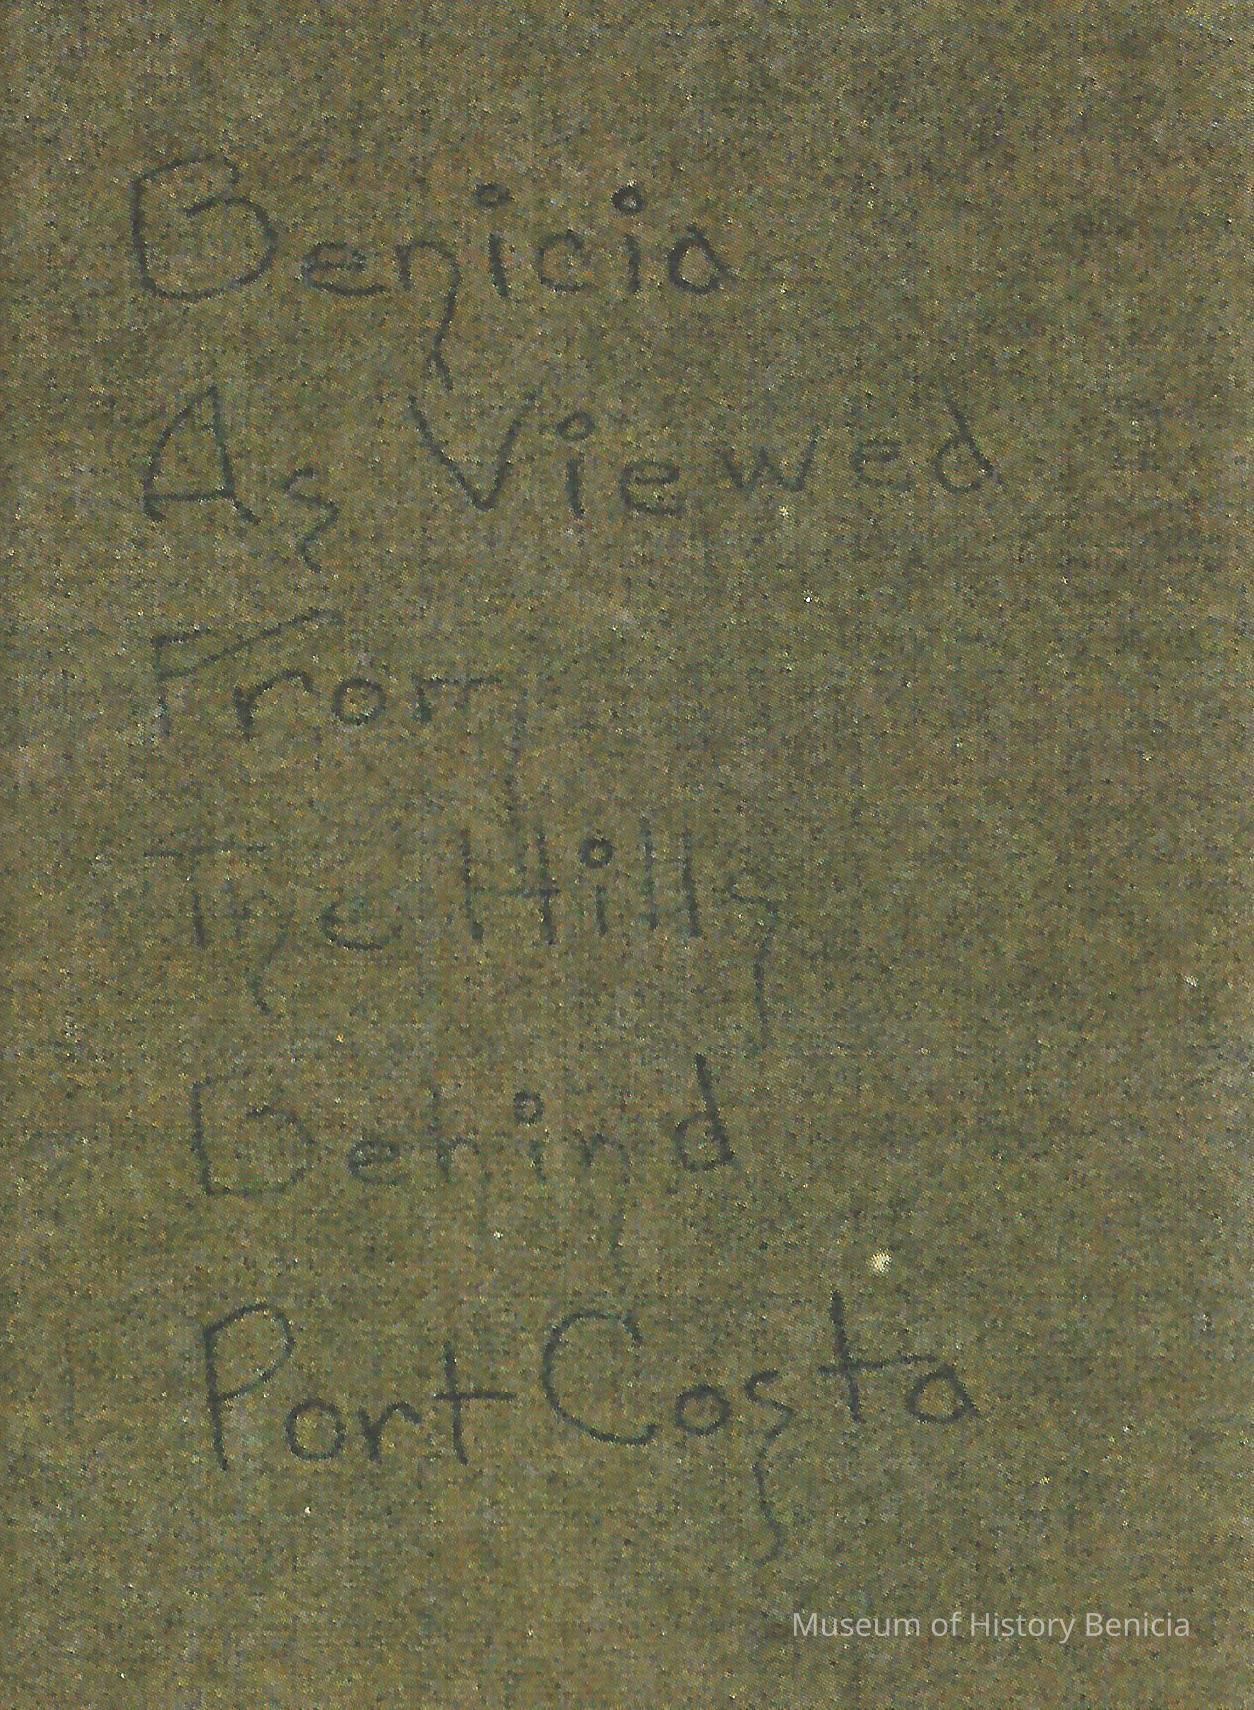 Benicia
As Viewed
From
The Hills
Behind
Port Costa
Museum of History Benicia